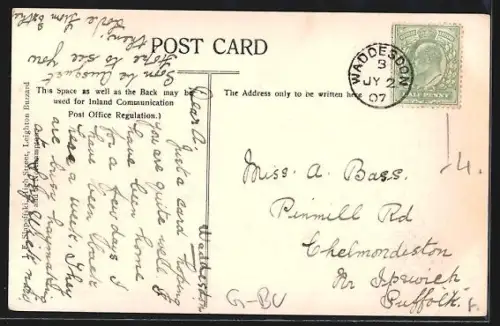 POST CARD
This Space as well as the Back may be
used for Inland Communication
Post Office Regulation.)
The Address only to be written here
WADDESDON
B
JY 2
07
HALF PENNY
Miss. A. Bass.
Pinmill Rd
Chelmondiston
Nr Ipswich
Suffolk.
Waddeston
Dear A
Just a card hoping
you are quite well I
have been home
for a few days I
have been back
a week. They
are busy haymaking
at
now
Hope to see you
Love from
G-BU
14.
Street, Leighton Buzzard